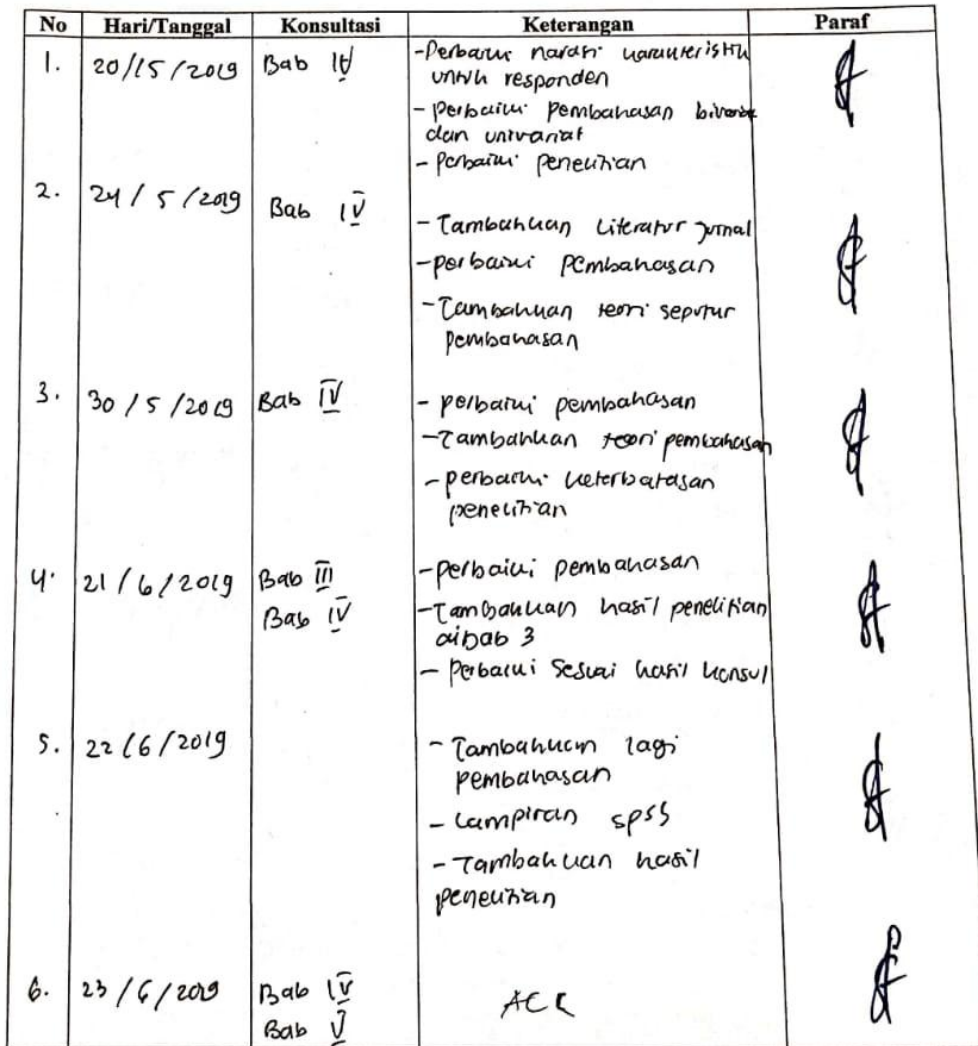 No Hari/Tanggal Konsultasi Keterangan Paraf
1. 20/15/2019 Bab IV -Perbaiki narasi karakteristik
untuk responden
- perbaiki pembahasan bivariat
dan univariat
- Perbaiki penelitian
2. 24/5/2019 Bab IV
- Tambahkan Literatur jurnal
- perbaiki pembahasan
- Tambahkan teori seputar
pembahasan
3. 30/5/2019 Bab IV - perbaiki pembahasan
- Tambahkan teori pembahasan
- perbaiki keterbatasan
penelitian
4. 21/6/2019 Bab III - perbaiki pembahasan
Bab IV - Tambahkan hasil penelitian
dibab 3
- Perbaiki Sesuai hasil konsul
5. 22/6/2019 - Tambahkan lagi
pembahasan
- Lampiran spss
- Tambahkan hasil
penelitian
6. 23/6/2019 Bab IV ACC
Bab V